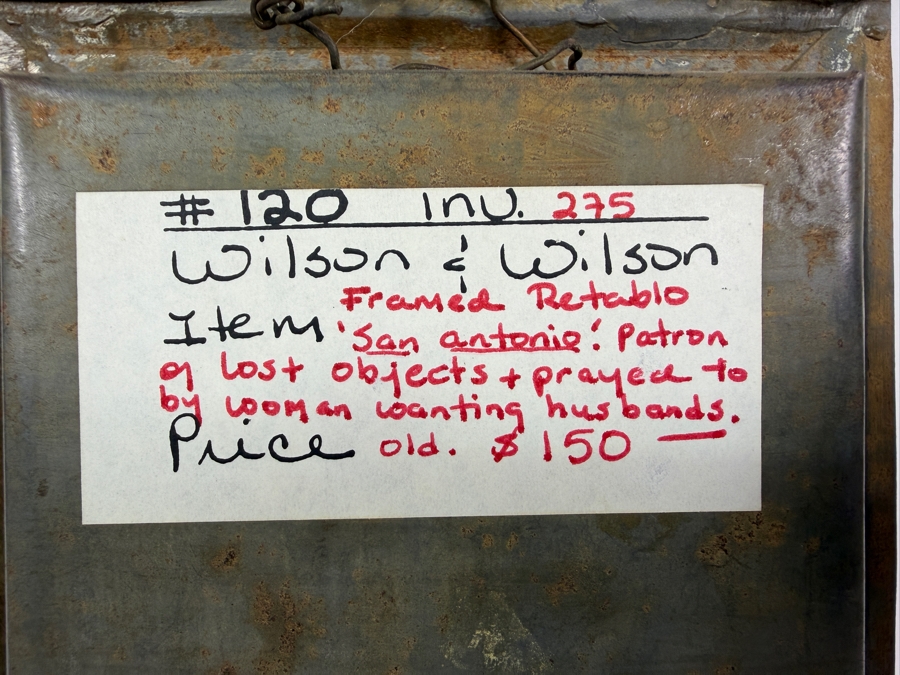 # 120 Inv. 275
Wilson & Wilson
Framed Retablo
Item 'San antonio'. Patron
of lost objects + prayed to
by woman wanting husbands.
Price old. $150